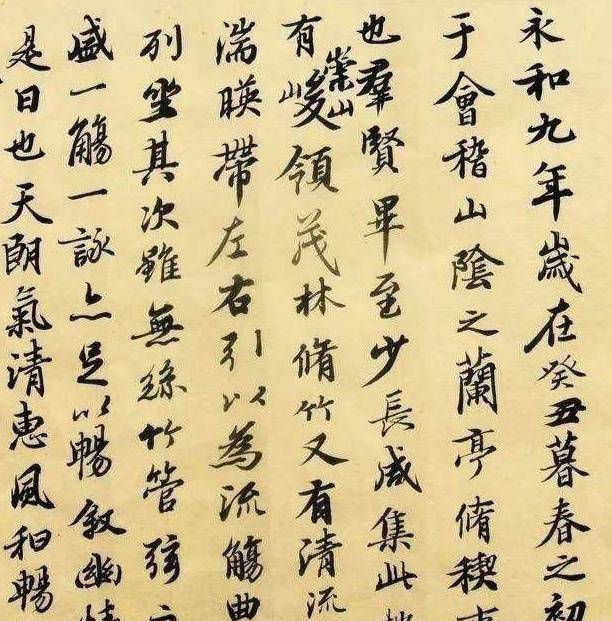 永和九年歲在癸丑暮春之初
于會稽山陰之蘭亭脩稧事
也羣賢畢至少長咸集此地
有崇山峻領茂林脩竹又有清流
湍暎帶左右引以為流觴曲
列坐其次雖無絲竹管弦之
盛一觴一詠亦足以暢敘幽情
是日也天朗氣清惠風和暢